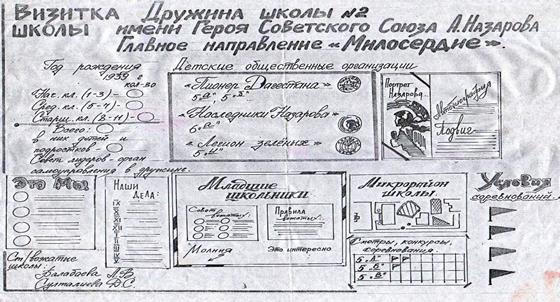 Визитка школы
Дружина школы №2
имени Героя Советского Союза А.Назарова
Главное направление «Милосердие».
Год рождения
1939 г
кол-во
Нас. кл. (1-3) -
Сред. кл. (5-7) -
Старш. кл. (8-11) -
Всего:
в них детей и
подростков -
Совет лидеров - орган
самоуправления в дружине.
Детские общественные организации
«Пионер Дагестана»
«Наследники Назарова»
«Легион зелёных»
Портрет
Назарова
Подвиг
Это Мы
Ст/вожатые
школы:
Наши
дела:
IX
X
XI
XII
I
II
III
IV
V
Младшие
школьники
Совет
вожатых:
Правила
вожатых.
Молния
Это интересно
Микрорайон
школы
Смотры, конкурсы,
соревнования.
5 „А"
5 „Б"
5 „В"
Условия
соревнований